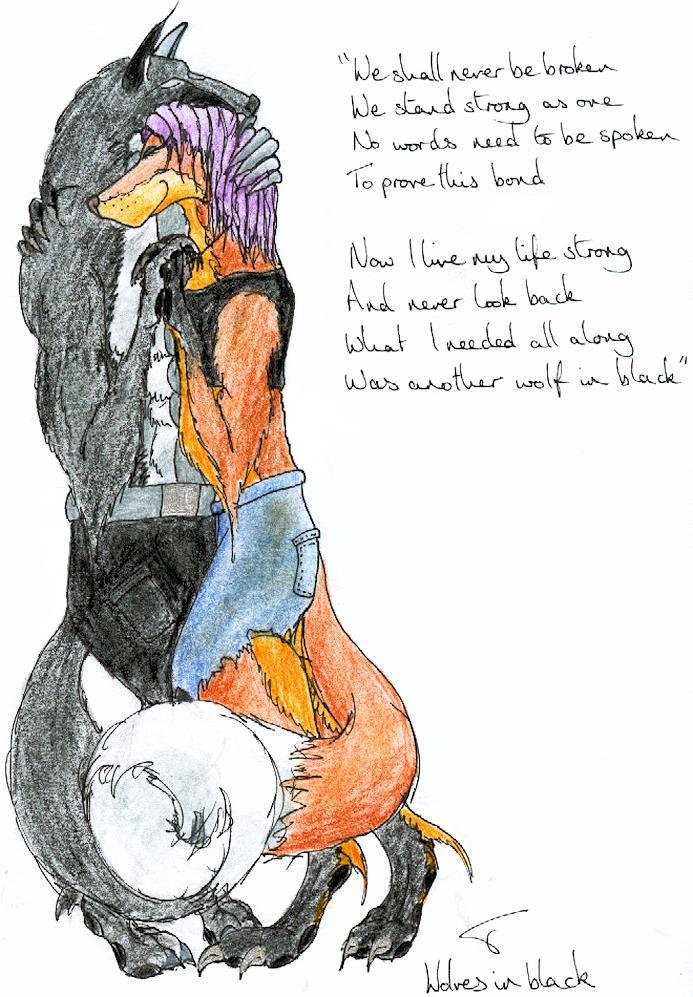 "We shall never be broken
We stand strong as one
No words need to be spoken
To prove this bond
Now I live my life strong
And never look back
What I needed all along
Was another wolf in black"
Wolves in black